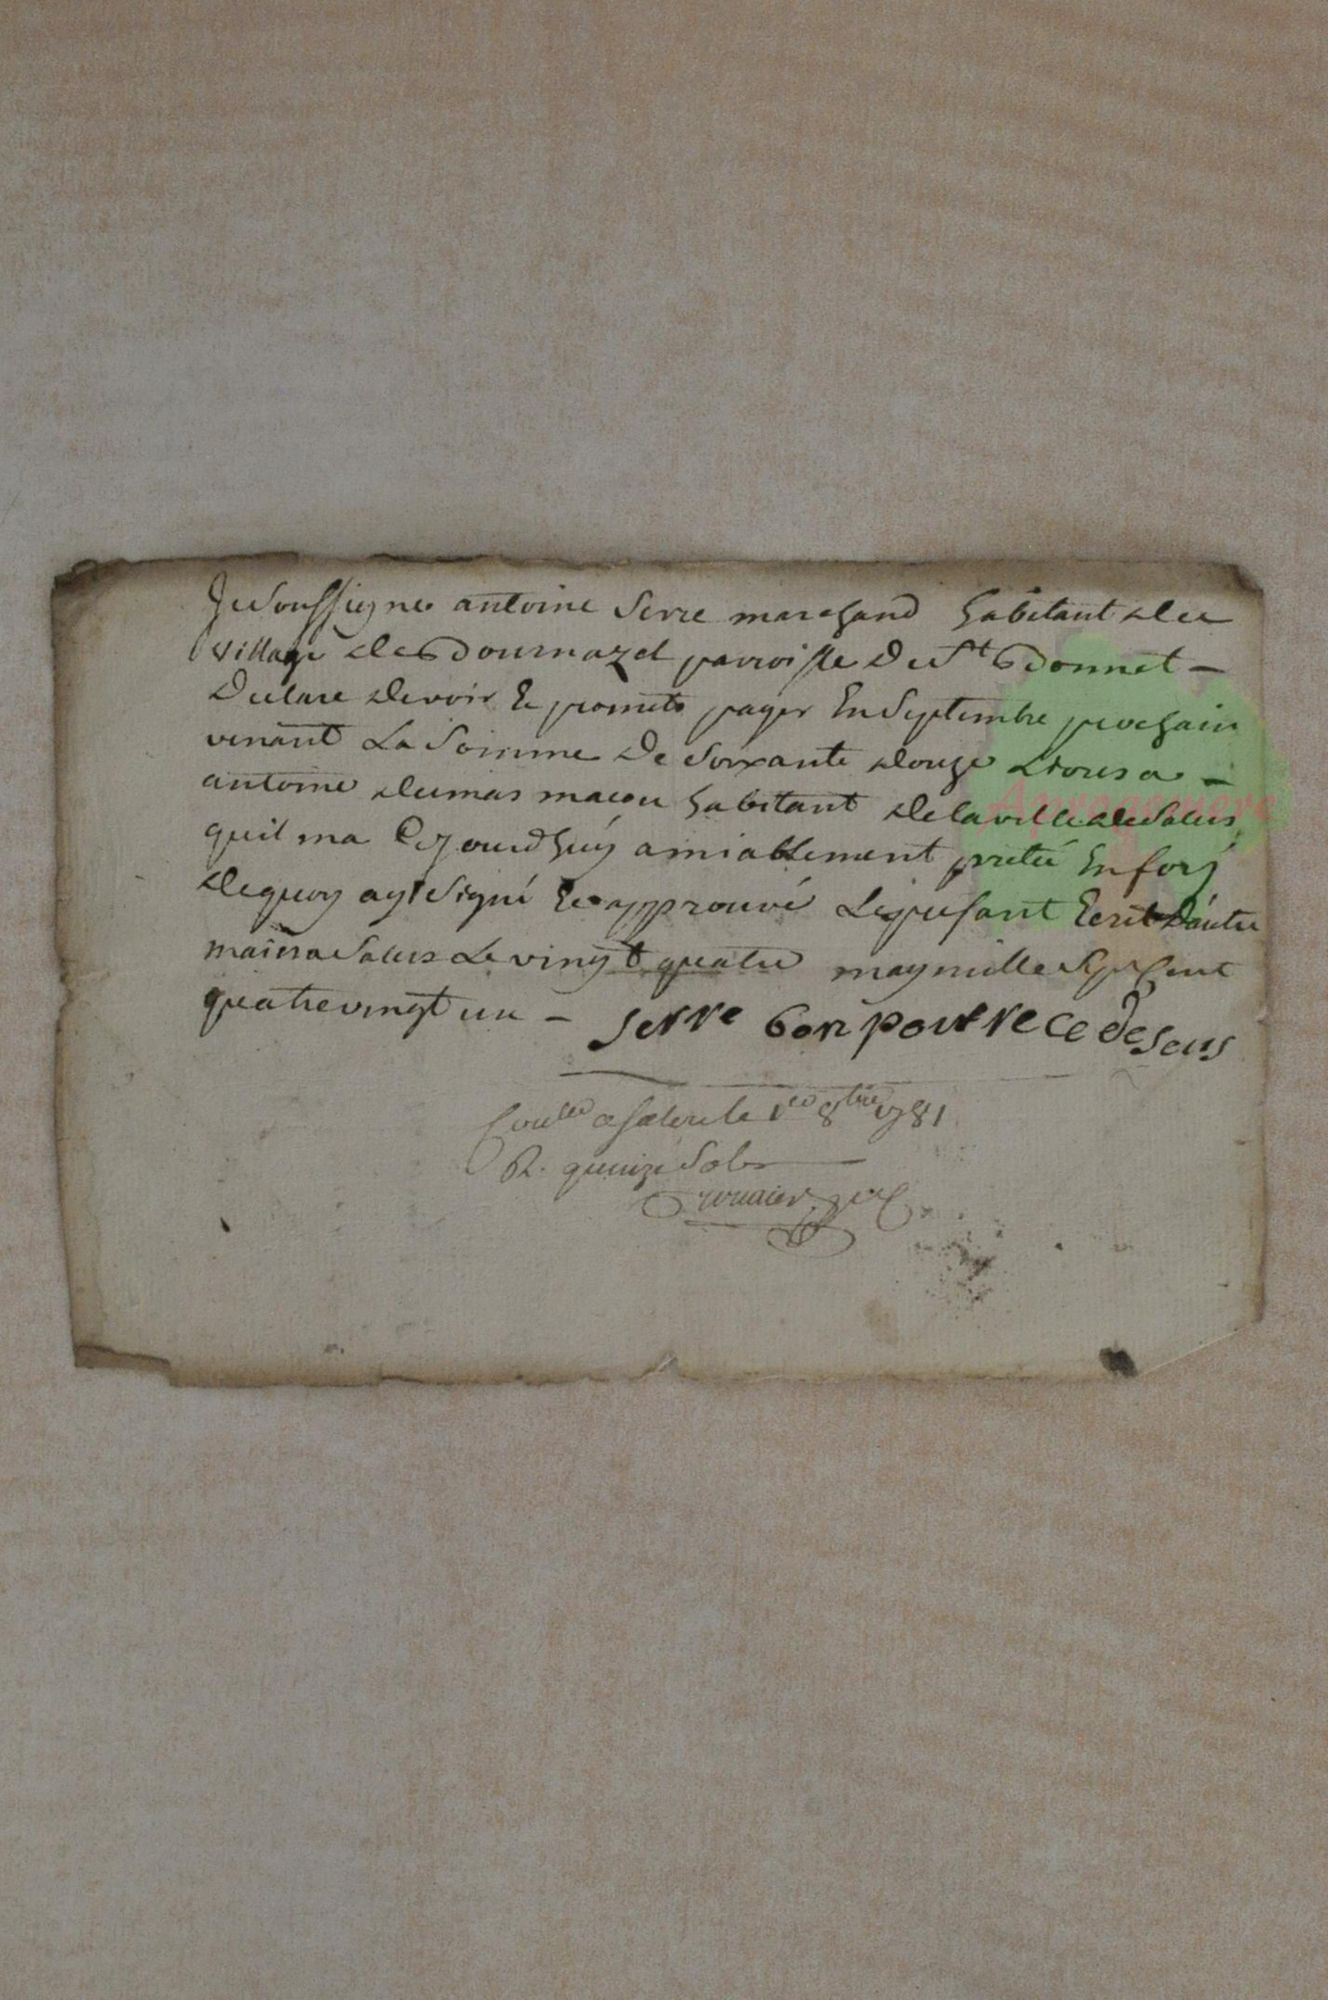 Je soussigné antoine serre marchand habitant du
village de Bournazel parroisse de St Bonnet –
declare devoir et promets payer en septembre prochain
venant la somme de soixante douze livres a –
antoine dumas macon habitant de la ville de Salers
quil ma cejourdhuy amiablement preté en foy
dequoy ay signé et approuvé le presant ecrit dautre
main a Salers le vingt quatre may mille sept cent
quatre vingt un – serre bon pour ce desus
a Salers le 1er 8bre 1781
R. quinze sols